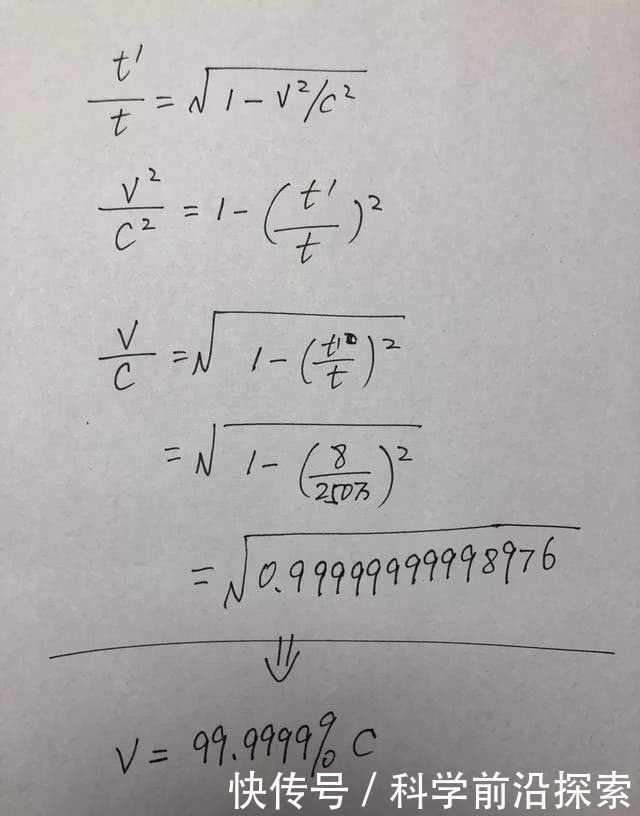 t'/t = √(1 - V²/C²)
V²/C² = 1 - (t'/t)²
V/C = √(1 - (t'/t)²)
= √(1 - (8/250万)²)
= √0.99999999998976
⇓
V = 99.9999% C
快传号 / 科学前沿探索